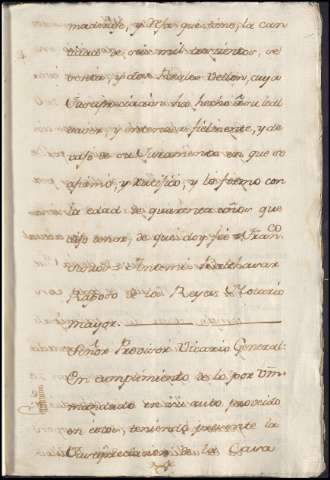 maderaje, y teja que tiene, la can
tidad de seis mil trescientos, se
tenta, y dos Reales Vellon, cuya
Tasacion ha hecho a su leal
saver, y entender fielmente, y de
vajo de su Juramento en que se
afirmó, y ratificó, y lo firmó con
la edad de quarenta años que
dijo tener, de que doy fee = Fran.co
= Antonio
Raposo de los Reyes Notario
mayor.
Señor Provisor Vicario General:
En cumplimiento de lo por Vm
mandado en su auto proveido
en estos, teniendo presente la
de las Casa